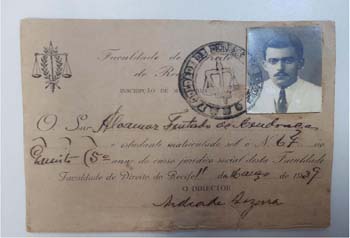 Faculdade de
do Recife
INSCRIPÇÃO DE
O Snr. Alvamar Furtado de Mendonça
é estudante matriculado sob o N. 67 no
(5º anno do curso juridico social desta Faculdade
Faculdade de Direito do Recife 11 de Março de 1939
O DIRECTOR
Andrade Bezerra